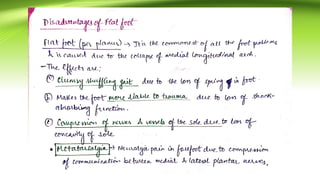 Disadvantages of Flat foot
Flat foot (pes planus) → It is the commonest of all the foot problems
& is caused due to the collapse of medial longitudinal arch.
- The Effects are:
(a) Clumsy shuffling gait due to the loss of spring in foot.
(b) Makes the foot more liable to trauma due to loss of shock-
absorbing function.
(c) Compression of nerves & vessels of the sole due to loss of
concavity of sole.
• Metatarsalgia → Neuralgic pain in forefoot due to compression
of communication between medial & lateral plantar nerves.